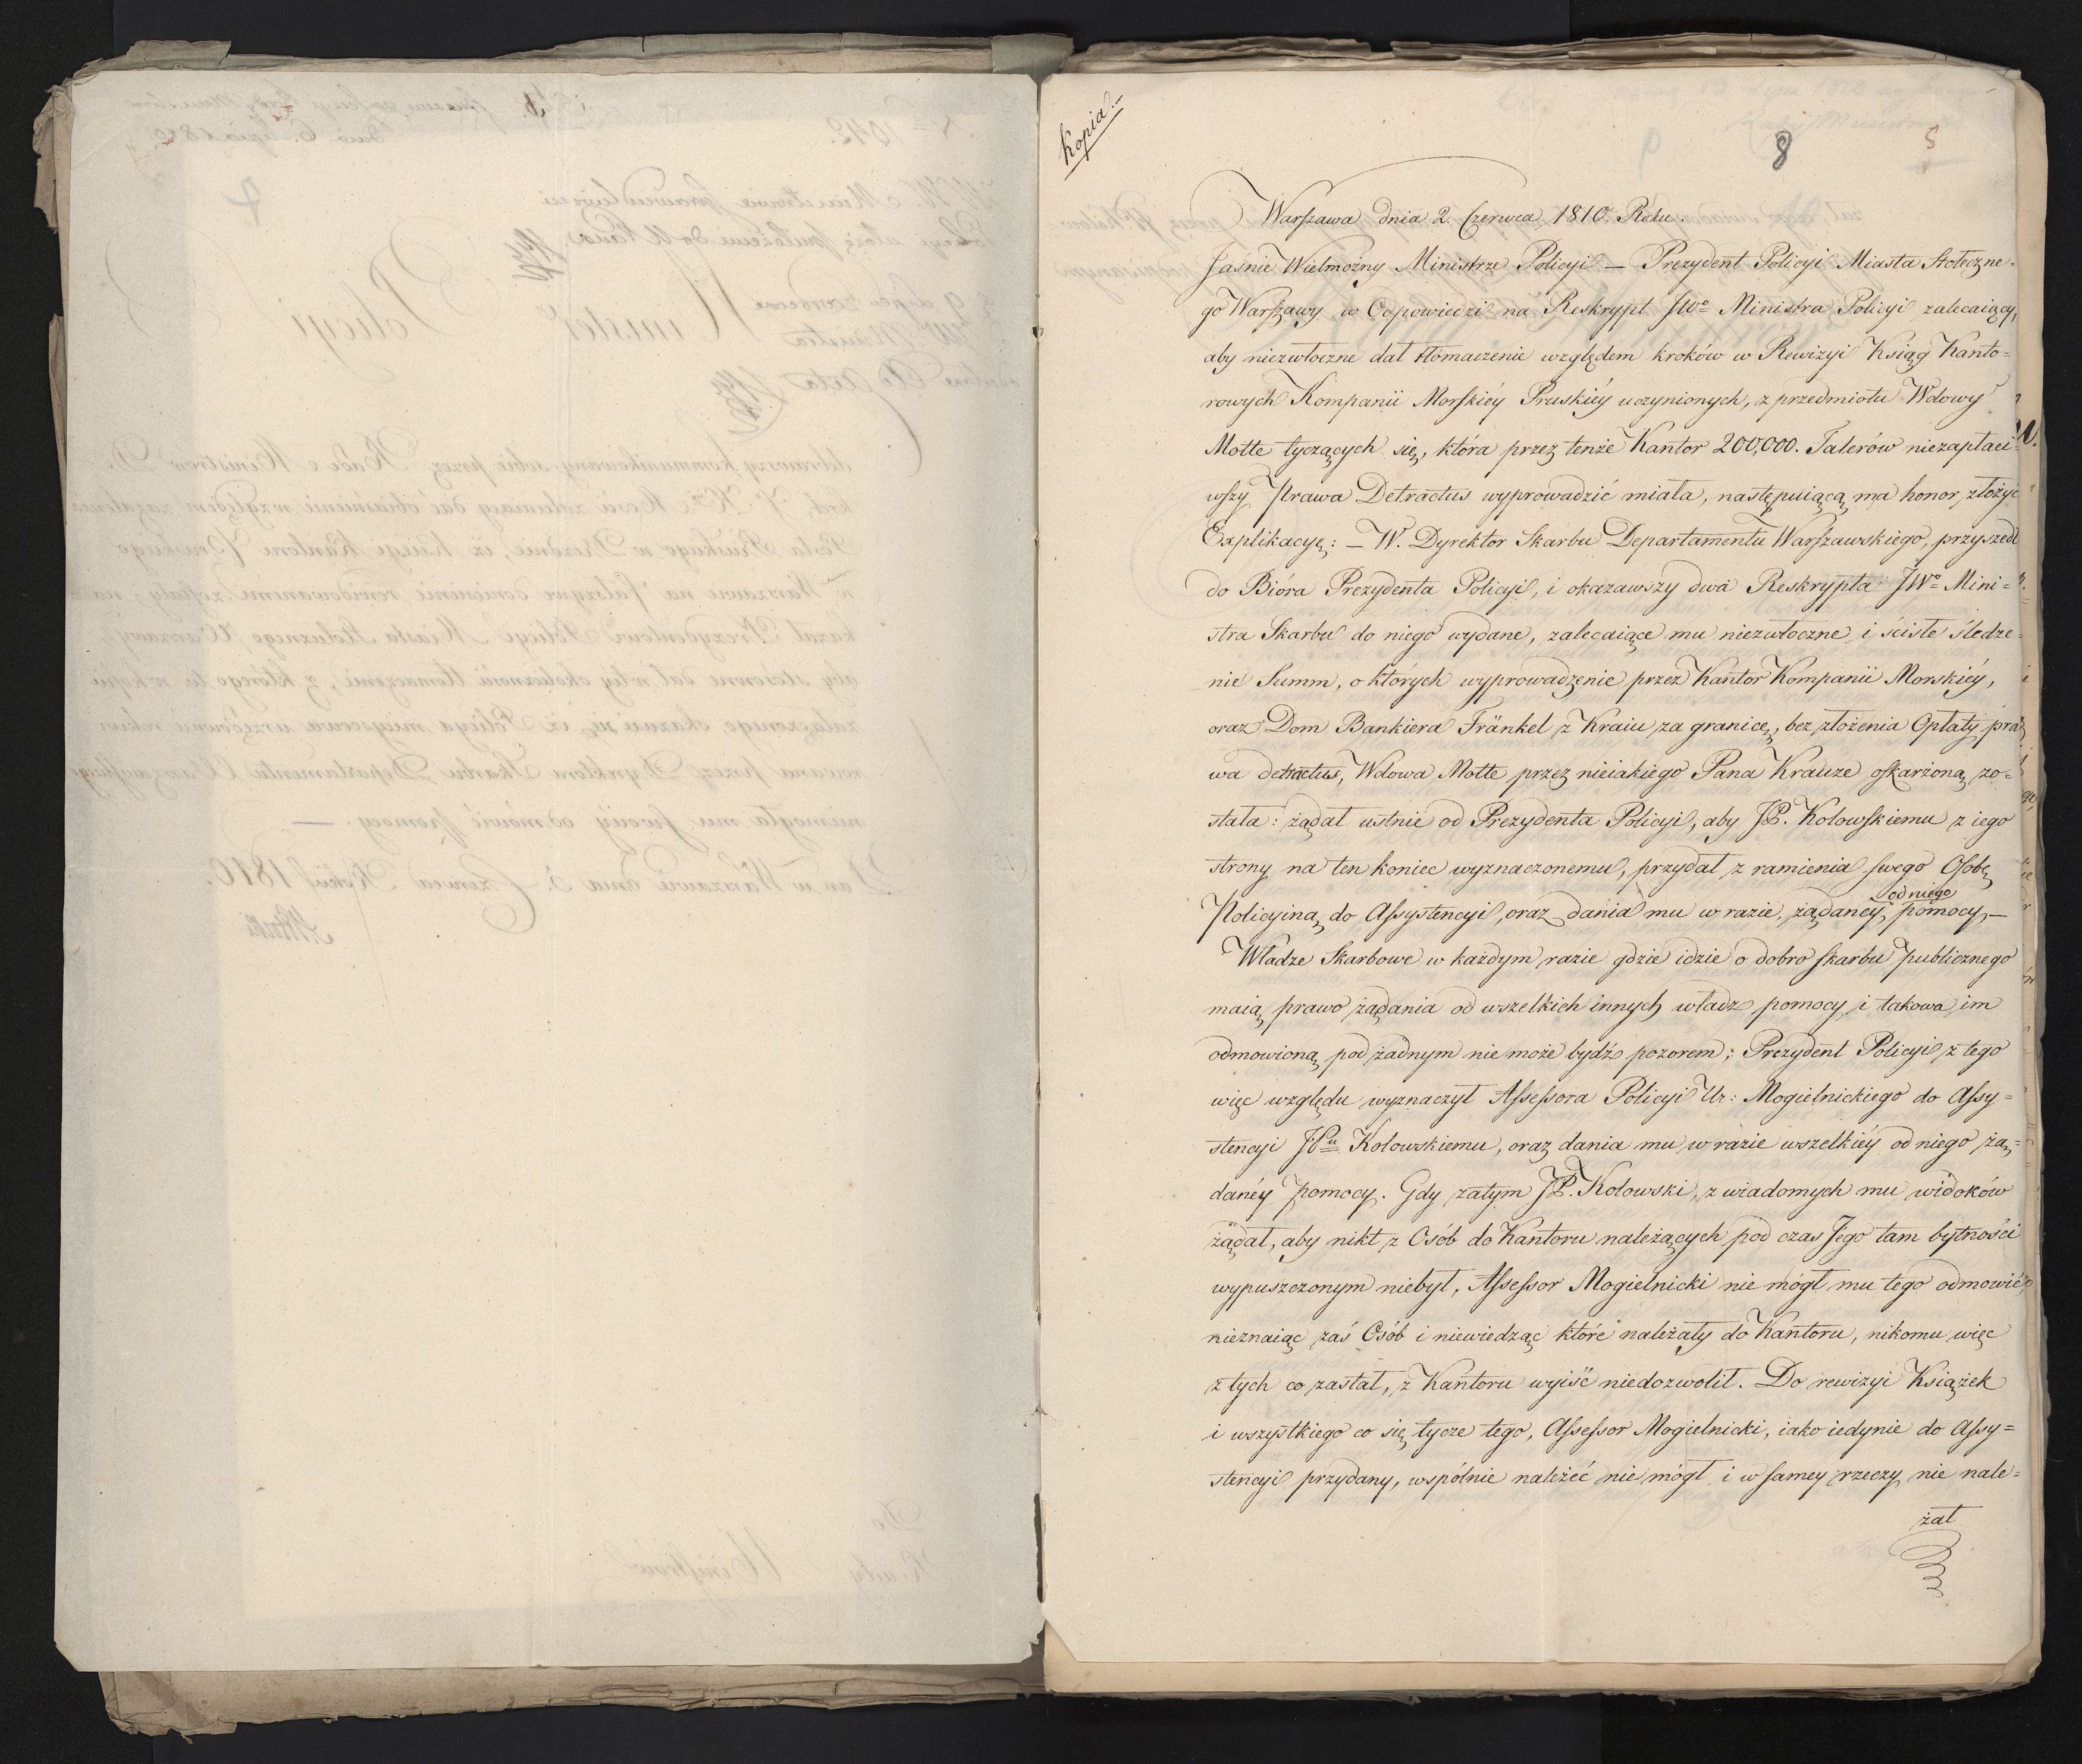 Kopia.
8
5
Warszawa dnia 2. Czerwca 1810. Roku.
Jaśnie Wielmożny Ministrze Policyi — Prezydent Policyi Miasta Stołeczne=
go Warszawy w Odpowiedzi na Reskrypt JWo Ministra Policyi zalecaiący,
aby niezwłoczne dał tłomaczenie względem kroków w Rewizyi Ksiąg Kanto=
rowych Kompanii Morskiéy Pruskiéy uczynionych, z przedmiotu Wdowy
Motte tyczących się, która przez tenże Kantor 200,000. Talerów niezapłaci
wszy Prawa Detractus wyprowadzić miała, następuiącą ma honor złożyć
Explikacyę: — W. Dyrektor Skarbu Departamentu Warszawskiego, przyszedł
do Bióra Prezydenta Policyi, i okazawszy dwa Reskrypta JWo Mini=
stra Skarbu do niego wydane, zalecaiące mu niezwłoczne i ścisłe śledze=
nie Summ, o których wyprowadzenie przez Kantor Kompanii Morskiéy,
oraz Dom Bankiera Fränkel z Kraiu za granicę, bez złożenia Opłaty pra
wa detractus, Wdowa Motte przez nieiakiego Pana Krauze oskarżoną zo=
stała: żądał ustnie od Prezydenta Policyi, aby JP. Kołowskiemu z iego
strony na ten koniec wyznaczonemu, przydał z ramienia swego Osobę
Policyiną do Assystencyi, oraz dania mu w razie, żądaney od niego pomocy, —
Władze Skarbowe w każdym razie gdzie idzie o dobro skarbu publicznego
maią prawo żądania od wszelkich innych władz pomocy, i takowa im
odmowioną pod żadnym nie może bydź pozorem; Prezydent Policyi z tego
więc względu wyznaczył Assessora Policyi Ur: Mogielnickiego do Assy=
stencyi JPu Kołowskiemu, oraz dania mu w razie wszelkiéy od niego żą=
danéy pomocy. Gdy zatym JP. Kołowski, z wiadomych mu widoków
żądał, aby nikt z Osób do Kantoru należących pod czas Jego tam bytności
wypuszczonym niebył, Assessor Mogielnicki nie mógł mu tego odmowić,
nieznaiąc zaś Osób i niewiedząc które należały do Kantoru, nikomu więc
z tych co zastał, z Kantoru wyiść niedozwolił. Do rewizyi Książek
i wszystkiego co się tycze tego, Assessor Mogielnicki, iako iedynie do Assy=
stencyi przydany, wspólnie należeć nie mógł i w samey rzeczy nie nale=
żał